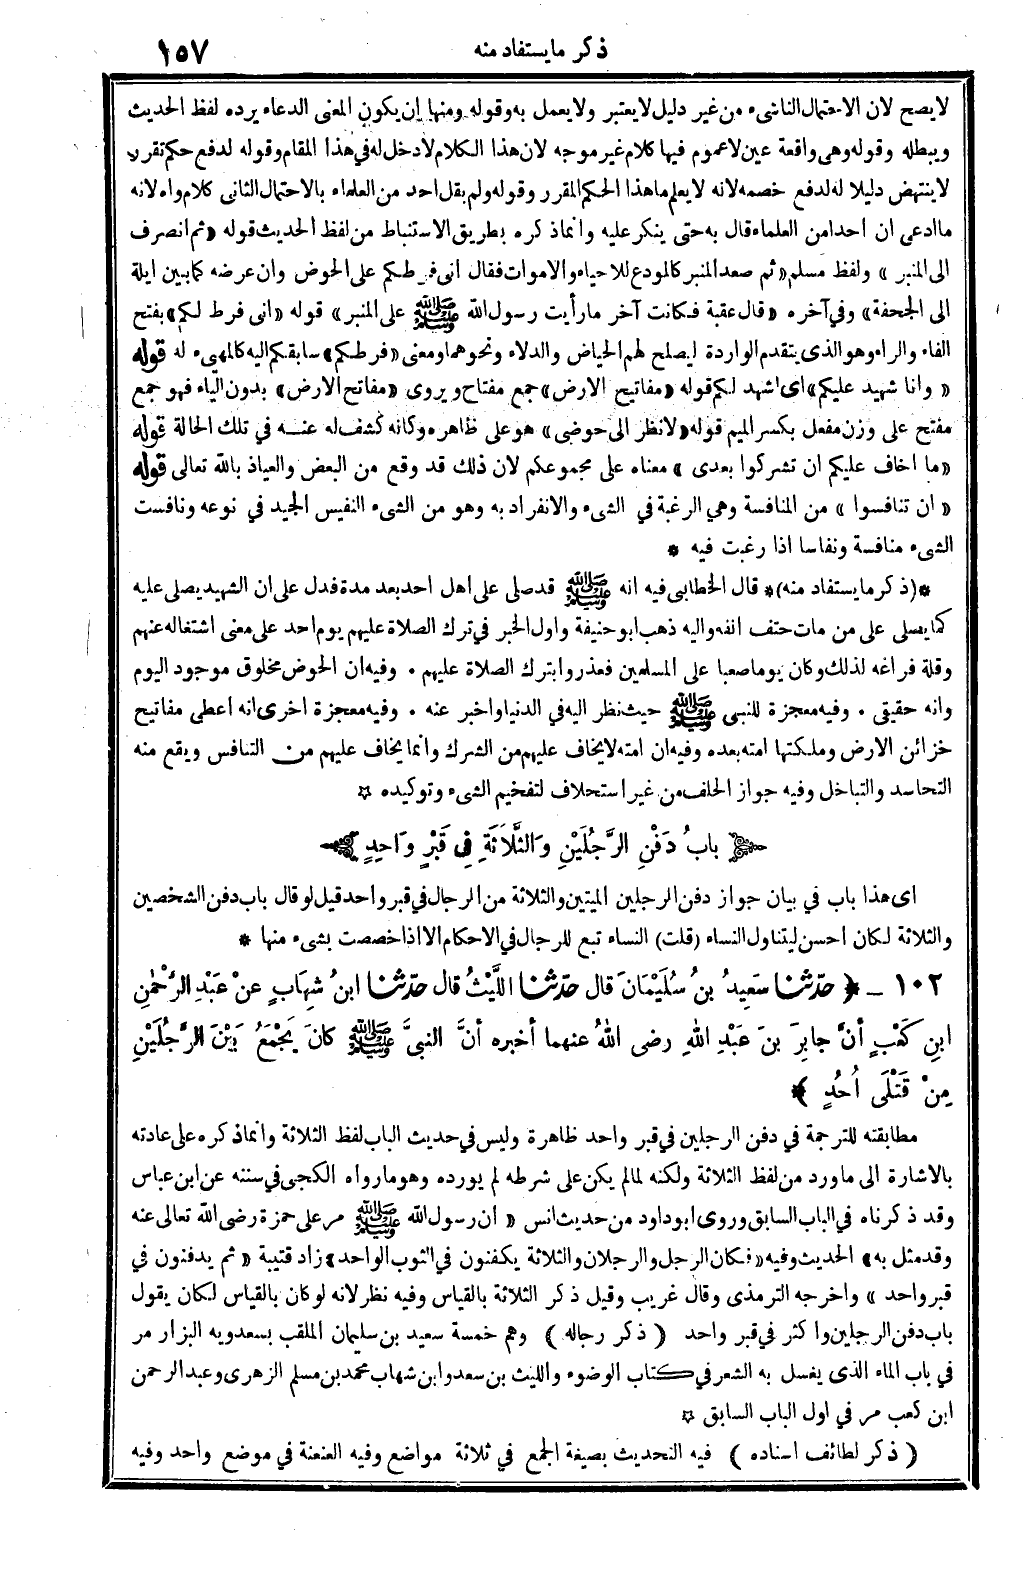 ذكر مايستفاد منه ١٥٧
لايصح لان الاحتمال الناشىء من غير دليل لايعتبر ولايعمل به وقوله ومنها إن يكون المعنى الدعاء يرده لفظ الحديث
ويبطله وقوله وهى واقعة عين لاعموم فيها كلام غير موجه لان هذا الكلام لادخل له في هذا المقام وقوله لدفع حكم تقرر
لاينتهض دليلا له لدفع خصمه لانه لايعلم ماهذا الحكم المقرر وقوله ولم يقل احد من العلماء بالاحتمال الثانى كلام واه لانه
ماادعى ان أحدا من العلماء قال به حتى ينكر عليه وانماذكره بطريق الاستنباط من لفظ الحديث قوله «ثم انصرف
الى المنبر» ولفظ مسلم «ثم صعد المنبر كالمودع للاحياء والاموات فقال انى فرطكم على الحوض وان عرضه كمابين ايلة
الى الجحفة» وفي آخره «قال عقبة فكانت آخر مارأيت رسول الله ﷺ على المنبر» قوله «انى فرط لكم» بفتح
الفاء والراء وهو الذى يتقدم الواردة ليصلح لهم الحياض والدلاء ونحوهما ومعنى «فرطكم» سابقكم اليه كالمهيء له قوله
«وانا شهيد عليكم» اى اشهد لكم قوله «مفاتيح الارض» جمع مفتاح ويروى «مفاتح الارض» بدون الياء فهو جمع
مفتح على وزن مفعل بكسر الميم قوله «لانظر الى حوضى» هو على ظاهره وكانه كشف له عنه في تلك الحالة قوله
«ما اخاف عليكم ان تشركوا بعدى» معناه على مجموعكم لان ذلك قد وقع من البعض والعياذ بالله تعالى قوله
«ان تنافسوا» من المنافسة وهي الرغبة في الشىء والانفراد به وهو من الشىء النفيس الجيد في نوعه ونافست
الشىء منافسة ونفاسا اذا رغبت فيه *
*(ذكر مايستفاد منه)* قال الخطابى فيه انه ﷺ قد صلى على اهل احد بعد مدة فدل على ان الشهيد يصلى عليه
كما يصلى على من مات حتف انفه واليه ذهب ابو حنيفة واول الخبر في ترك الصلاة عليهم يوم احد على معنى اشتغاله عنهم
وقلة فراغه لذلك وكان يوما صعبا على المسلمين فعذروا بترك الصلاة عليهم . وفيه ان الحوض مخلوق موجود اليوم
وانه حقيقى . وفيه معجزة للنبى ﷺ حيث نظر اليه في الدنيا واخبر عنه . وفيه معجزة اخرى انه اعطى مفاتيح
خزائن الارض وملكتها امته بعده وفيه ان امته لايخاف عليهم من الشرك وانما يخاف عليهم من التنافس ويقع منه
التحاسد والتباخل وفيه جواز الحلف من غير استحلاف لتفخيم الشىء وتوكيده *
﴿بابُ دَفْنِ الرَّجُلَيْنِ وَالثَّلاَثَةِ فِي قَبْرٍ وَاحِدٍ﴾
اى هذا باب في بيان جواز دفن الرجلين الميتين والثلاثة من الرجال في قبر واحد قيل لو قال باب دفن الشخصين
والثلاثة لكان احسن ليتناول النساء (قلت) النساء تبع للرجال في الاحكام الا اذا خصصت بشىء منها *
١٠٢ - ﴿حدّثنا سَعِيدُ بنُ سُلَيْمَانَ قال حدّثنا اللَّيْثُ قال حدّثنا ابنُ شِهَابٍ عنْ عَبْدِ الرَّحْمٰنِ
ابنِ كَعْبٍ أنَّ جابِرَ بنَ عَبْدِ اللهِ رضى اللهُ عنهما أخبره أنَّ النبىَّ ﷺ كانَ يَجْمَعُ بَيْنَ الرَّجُلَيْنِ
مِنْ قَتْلَى اُحُدٍ﴾
مطابقته للترجمة في دفن الرجلين في قبر واحد ظاهرة وليس في حديث الباب لفظ الثلاثة وانما ذكره على عادته
بالاشارة الى ماورد من لفظ الثلاثة ولكنه لما لم يكن على شرطه لم يورده وهو مارواه الكجى في سننه عن ابن عباس
وقد ذكرناه في الباب السابق وروى ابو داود من حديث انس «ان رسول الله ﷺ مر على حمزة رضى الله تعالى عنه
وقد مثل به» الحديث وفيه «فكان الرجل والرجلان والثلاثة يكفنون في الثوب الواحد» زاد قتيبة «ثم يدفنون في
قبر واحد» واخرجه الترمذى وقال غريب وقيل ذكر الثلاثة بالقياس وفيه نظر لانه لو كان بالقياس لكان يقول
باب دفن الرجلين واكثر في قبر واحد (ذكر رجاله) وهم خمسة سعيد بن سليمان الملقب بسعدويه البزار مر
في باب الماء الذى يغسل به الشعر في كتاب الوضوء والليث بن سعد وابن شهاب محمد بن مسلم الزهرى وعبد الرحمن
ابن كعب مر في اول الباب السابق *
(ذكر لطائف اسناده) فيه التحديث بصيغة الجمع في ثلاثة مواضع وفيه العنعنة في موضع واحد وفيه